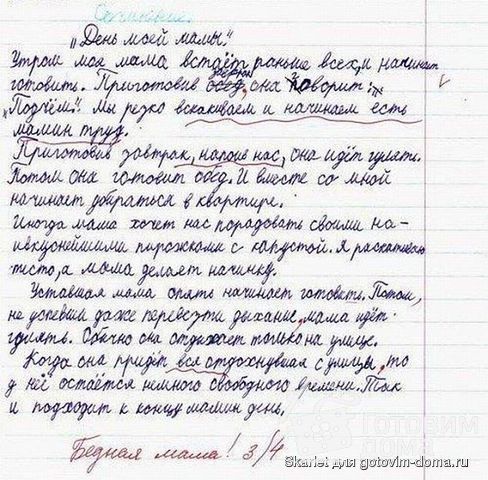 Сочинение.
„День моей мамы."
Утром моя мама встаёт раньше всех, и начинает
готовить. Приготовив завтрак обед, она говорит:
„Подъём." Мы резко вскакиваем и начинаем есть
мамин труд.
Приготовив завтрак, напоив нас, она идёт гулять.
Потом она готовит обед. И вместе со мной
начинает убираться в квартире.
Иногда мама хочет нас порадовать своими на-
ивкуснейшими пирожками с капустой. Я раскатываю
тесто, а мама делает начинку.
Уставшая мама опять начинает готовить. Потом,
не успевши даже перевезти дыхание, мама идёт
гулять. Обычно она отдыхает только на улице.
Когда она придёт вся отдохнувшая с улицы, то
у неё остаётся немного свободного времени. Так
и подходит к концу мамин день.
Бедная мама! 3/4
ГОТОВИМ
ДОМА
Skarlet для gotovim-doma.ru